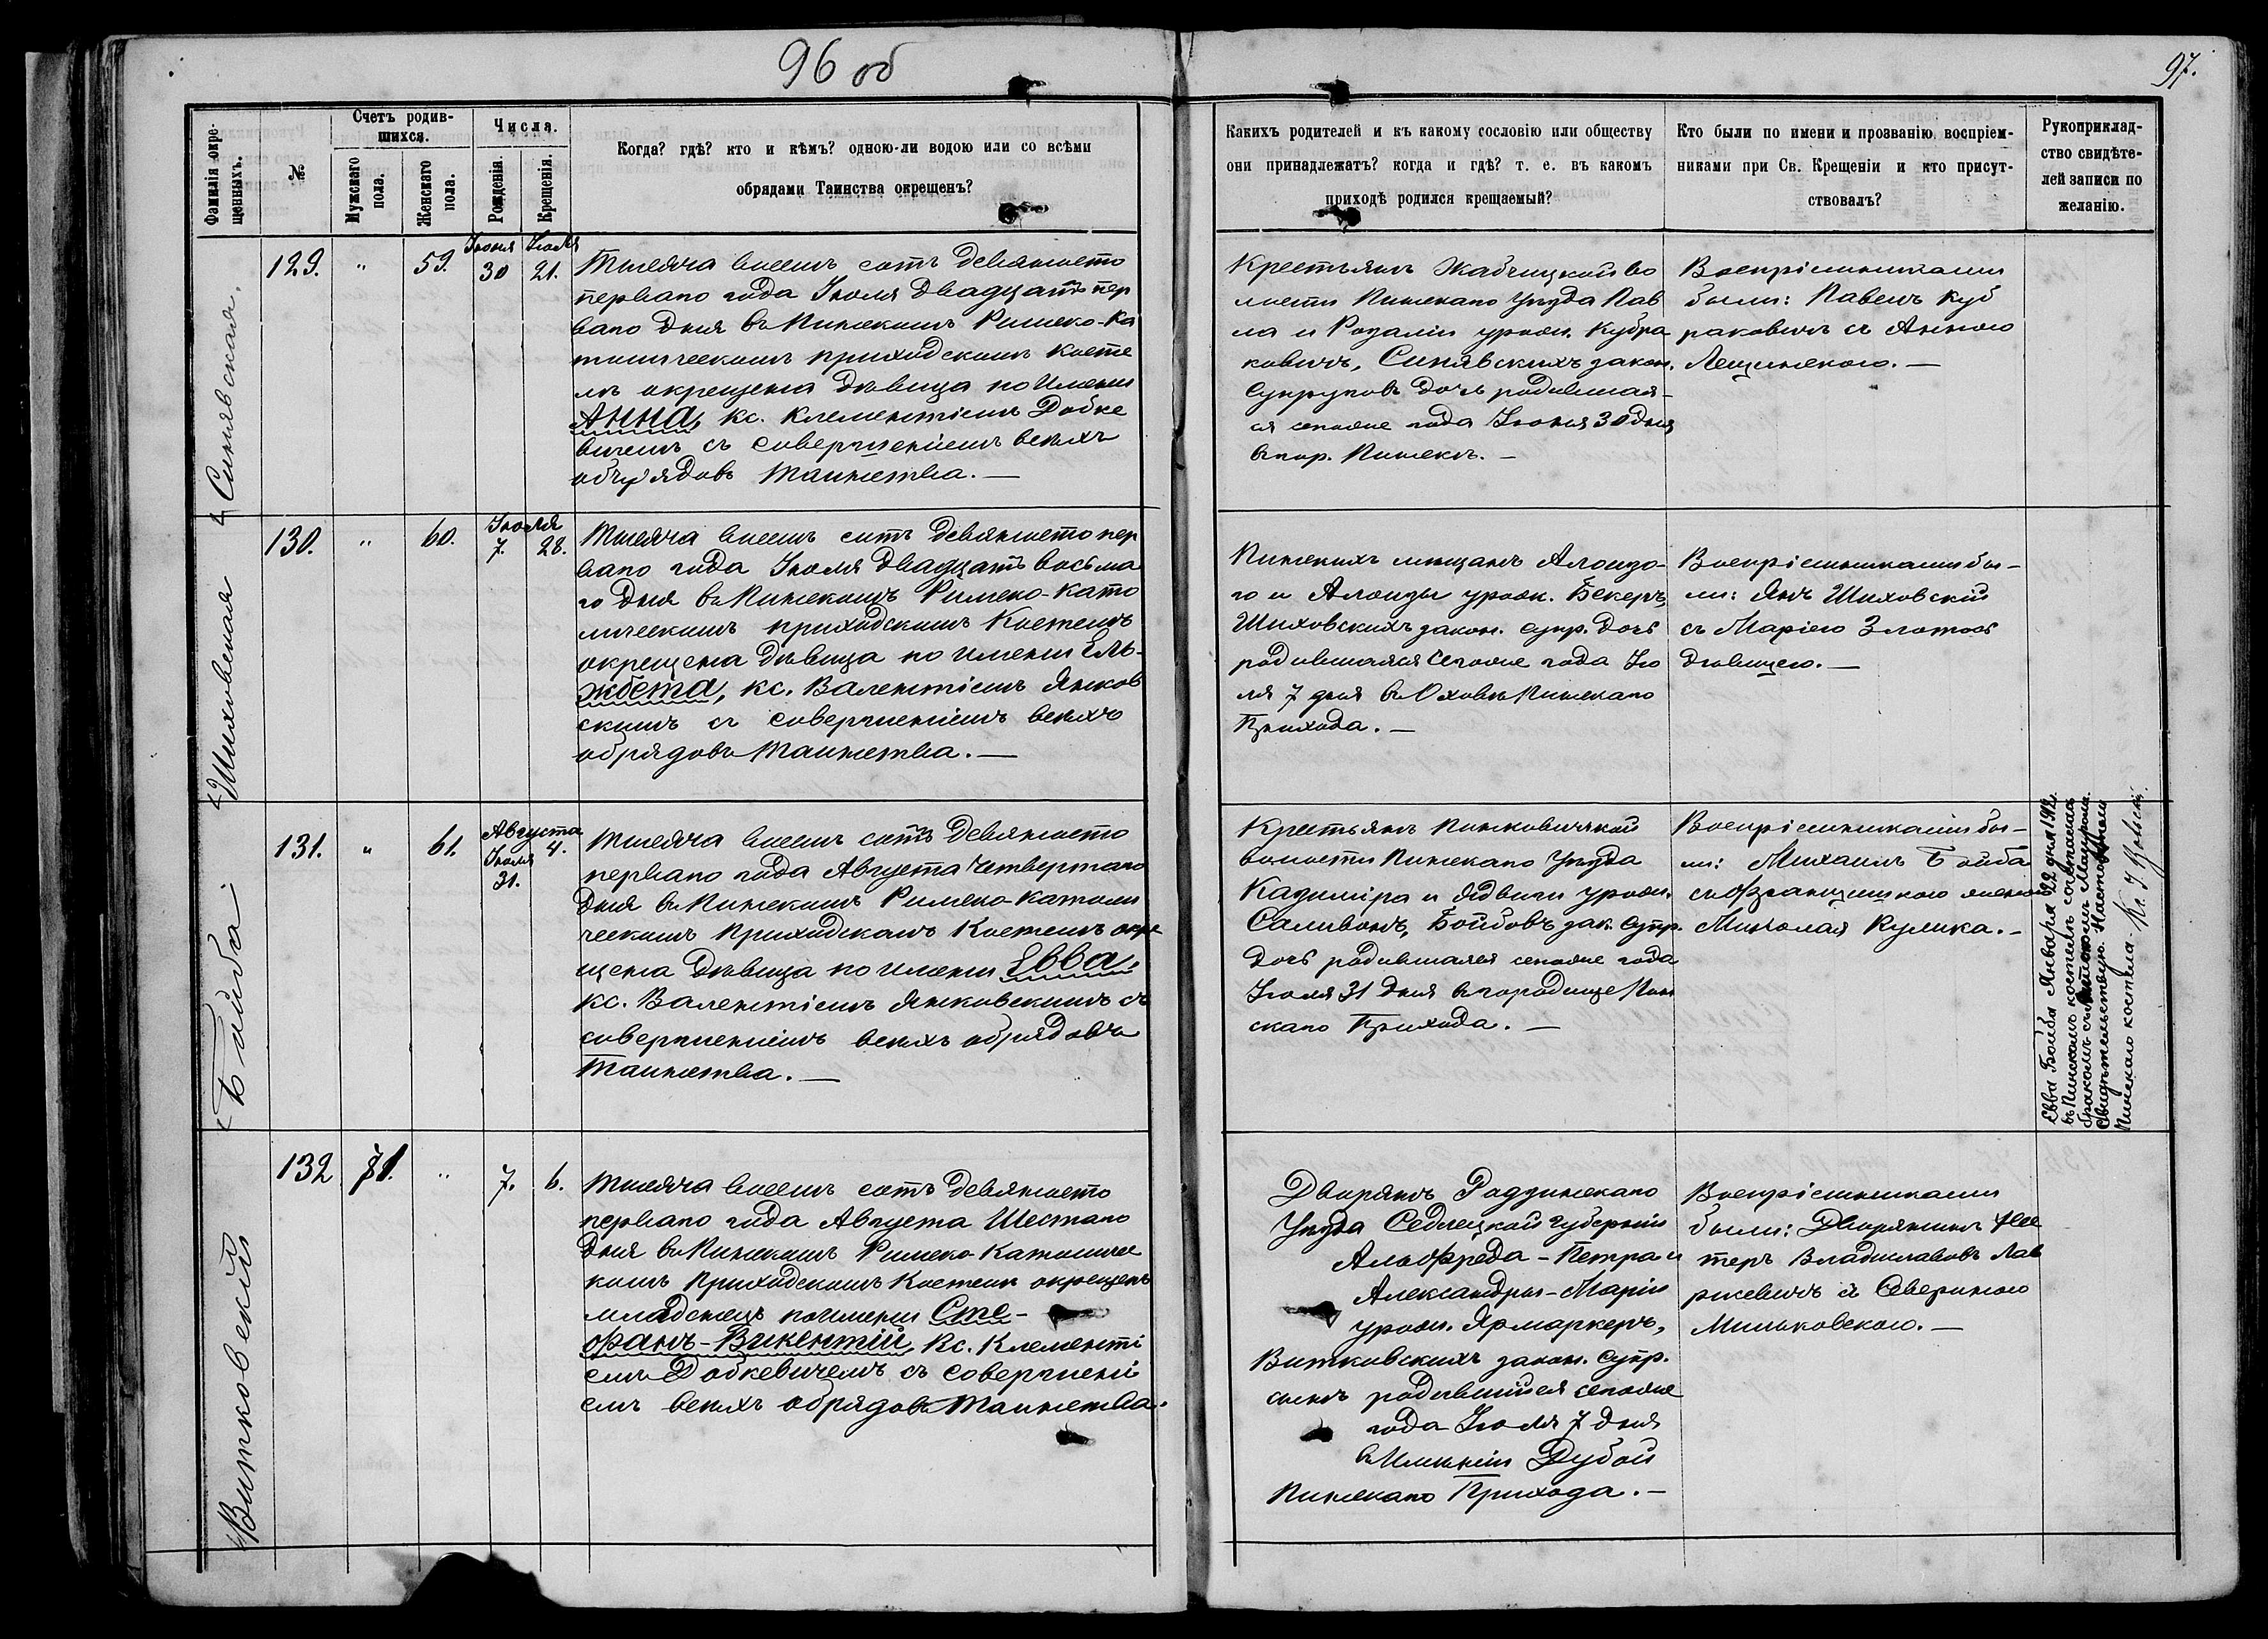 96 об
97.
Фамилія окре-
щенныхъ.
№
Счетъ родив-
шихся.
Мужскаго
пола.
Женскаго
пола.
Числа.
Рожденія.
Крещенія.
Когда? гдѣ? кто и кѣмъ? одною-ли водою или со всѣми
обрядами Таинства окрещенъ?
Какихъ родителей и къ какому сословію или обществу
они принадлежатъ? когда и гдѣ? т. е. въ какомъ
приходѣ родился крещаемый?
Кто были по имени и прозванію воспріем-
никами при Св. Крещеніи и кто присут-
ствовалъ?
Рукоприклад-
ство свидѣте-
лей записи по
желанію.
Синявская.
129.
"
59.
Іюня
30
Іюля
21.
Тысяча восемь сотъ девяносто
перваго года Іюля двадцать пер
ваго дня въ Пинскомъ Римско-Ка
толическомъ приходскомъ косте
лѣ окрещена дѣвица по имени
Анна, кс. Клементіемъ Добке
вичемъ съ совершеніемъ всѣхъ
обрядовъ Таинства. —
Крестьянъ Жабчицкой во
лости Пинскаго Уѣзда Пав
ла и Розаліи урожн. Кубра
ковичъ, Синявскихъ закон.
супруговъ дочь родившая-
ся сегоже года Іюня 30 дня
въ пар. Пинскѣ. —
Воспріемниками
были: Павелъ Куб
раковичъ съ Анною
Лещинскою. —
Шиховская
130.
"
60.
Іюля
7.
28.
Тысяча восемь сотъ девяносто пер
ваго года Іюля двадцать восьма
го дня въ Пинскомъ Римско-Като
лическомъ приходскомъ Костелѣ
окрещена дѣвица по имени Эль-
жбета, кс. Валентіемъ Янков
скимъ съ совершеніемъ всѣхъ
обрядовъ Таинства. —
Пинскихъ мѣщанъ Алоизо-
го и Алоизы урожн. Бекеръ,
Шиховскихъ закон. супр. дочь
родившаяся сегоже года Ію
ля 7 дня въ Оховѣ Пинскаго
Прихода. —
Воспріемниками бы-
ли: Янъ Шиховскій
съ Маріею Злотою
дѣвицею. —
Бойба.
131.
"
61.
Августа
Іюля
31.
4.
Тысяча восемь сотъ девяносто
перваго года Августа четвертаго
дня въ Пинскомъ Римско-Католи
ческомъ Приходскомъ Костелѣ окре
щена дѣвица по имени Евва,
кс. Валентіемъ Янковскимъ съ
совершеніемъ всѣхъ обрядовъ
Таинства. —
Крестьянъ Пинковичской
волости Пинскаго Уѣзда
Казиміра и Ядвиги урожн.
Саливонъ, Бойбовъ зак. супр.
дочь родившаяся сегоже года
Іюля 31 дня въ городище Пин
скаго Прихода. —
Воспріемниками бы-
ли: Михаилъ Бойба
съ Францишкою женою
Миколая Кулика. —
Евва Бойба Января 22 дня 1912 г.
въ Пинскомъ костелѣ сочеталась
бракомъ съ
Свидѣтельствую. Настоятель
Пинскаго костела Кс. І.
Витковскій
132
71.
"
7.
6.
Тысяча восемь сотъ девяносто
перваго года Августа Шестаго
дня въ Пинскомъ Римско-Католичес
комъ Приходскомъ Костелѣ окрещенъ
младенецъ по имени Сте-
фанъ-Викентій, кс. Клементі
емъ Добкевичемъ съ совершені
емъ всѣхъ обрядовъ Таинства.
Дворянъ Радзинскаго
Уѣзда Сѣдлецкой губерніи
Альфреда-Петра и
Александры-Маріи
урожн. Ярмаркеръ,
Витковскихъ закон. супр.
сынъ родившійся сегоже
года Іюля 7 дня
въ Имѣніи Дубой
Пинскаго Прихода. —
Воспріемниками
были: Дворянинъ
Владиславовъ Лав
ржевичъ съ Севериною
Миньковскою. —